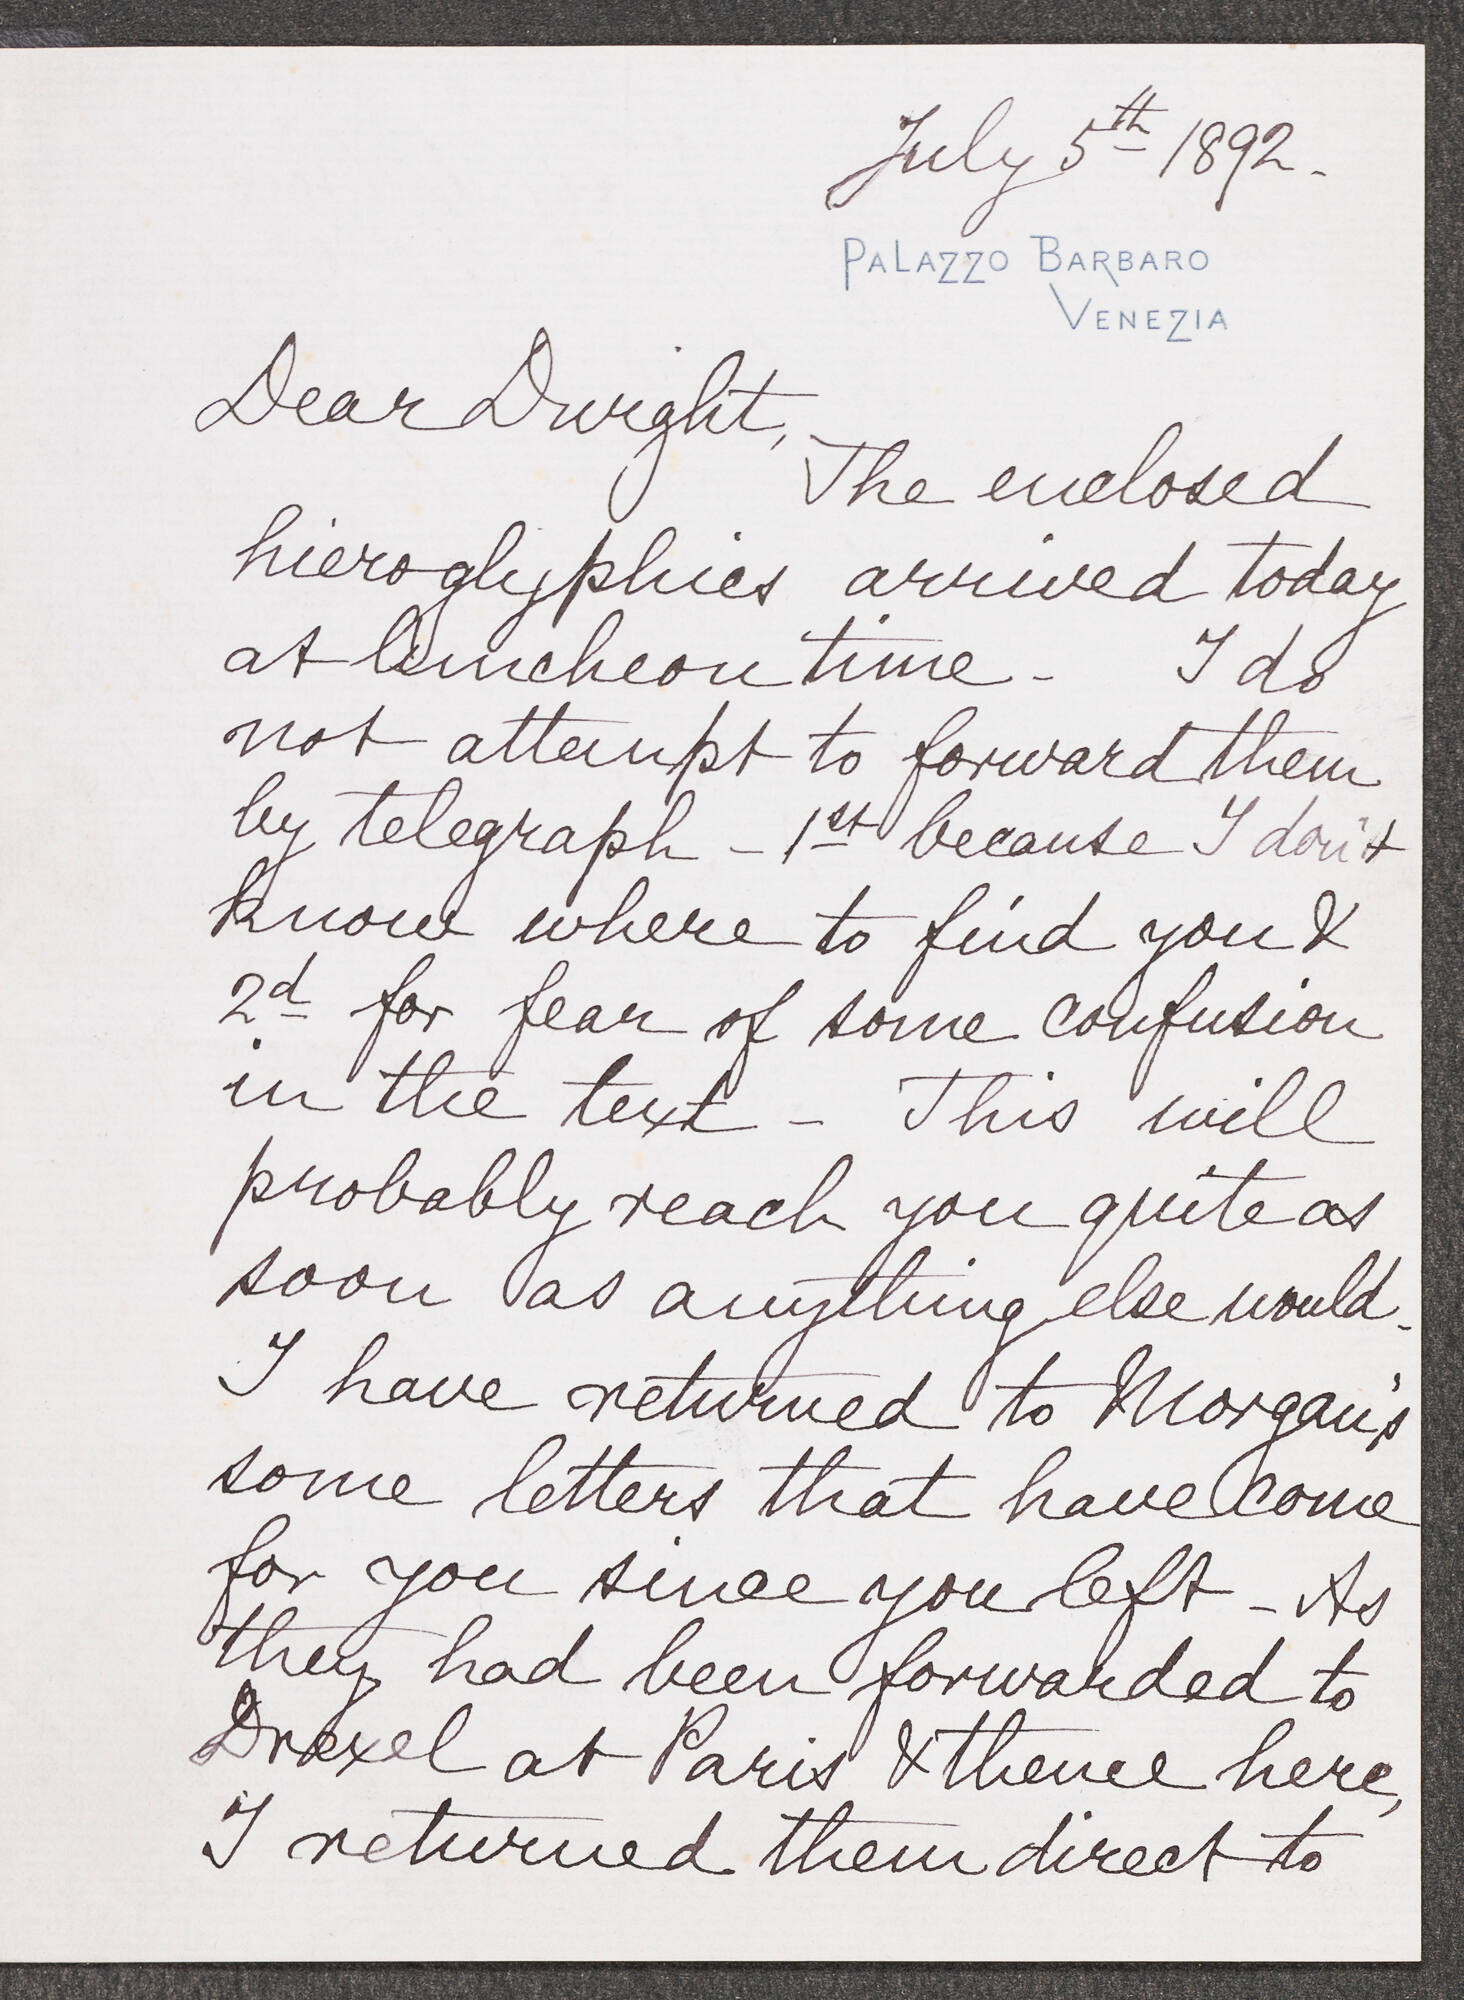 July 5th 1892.
PALAZZO BARBARO
VENEZIA
Dear Dwight,
The enclosed
hieroglyphics arrived today
at luncheon time - I do
not attempt to forward them
by telegraph - 1st because I don't
know where to find you &
2d for fear of some confusion
in the text - This will
probably reach you quite as
soon as anything else would.
I have returned to Morgan's
some letters that have come
for you since you left - As
they had been forwarded to
Drexel at Paris & thence here,
I returned them direct to